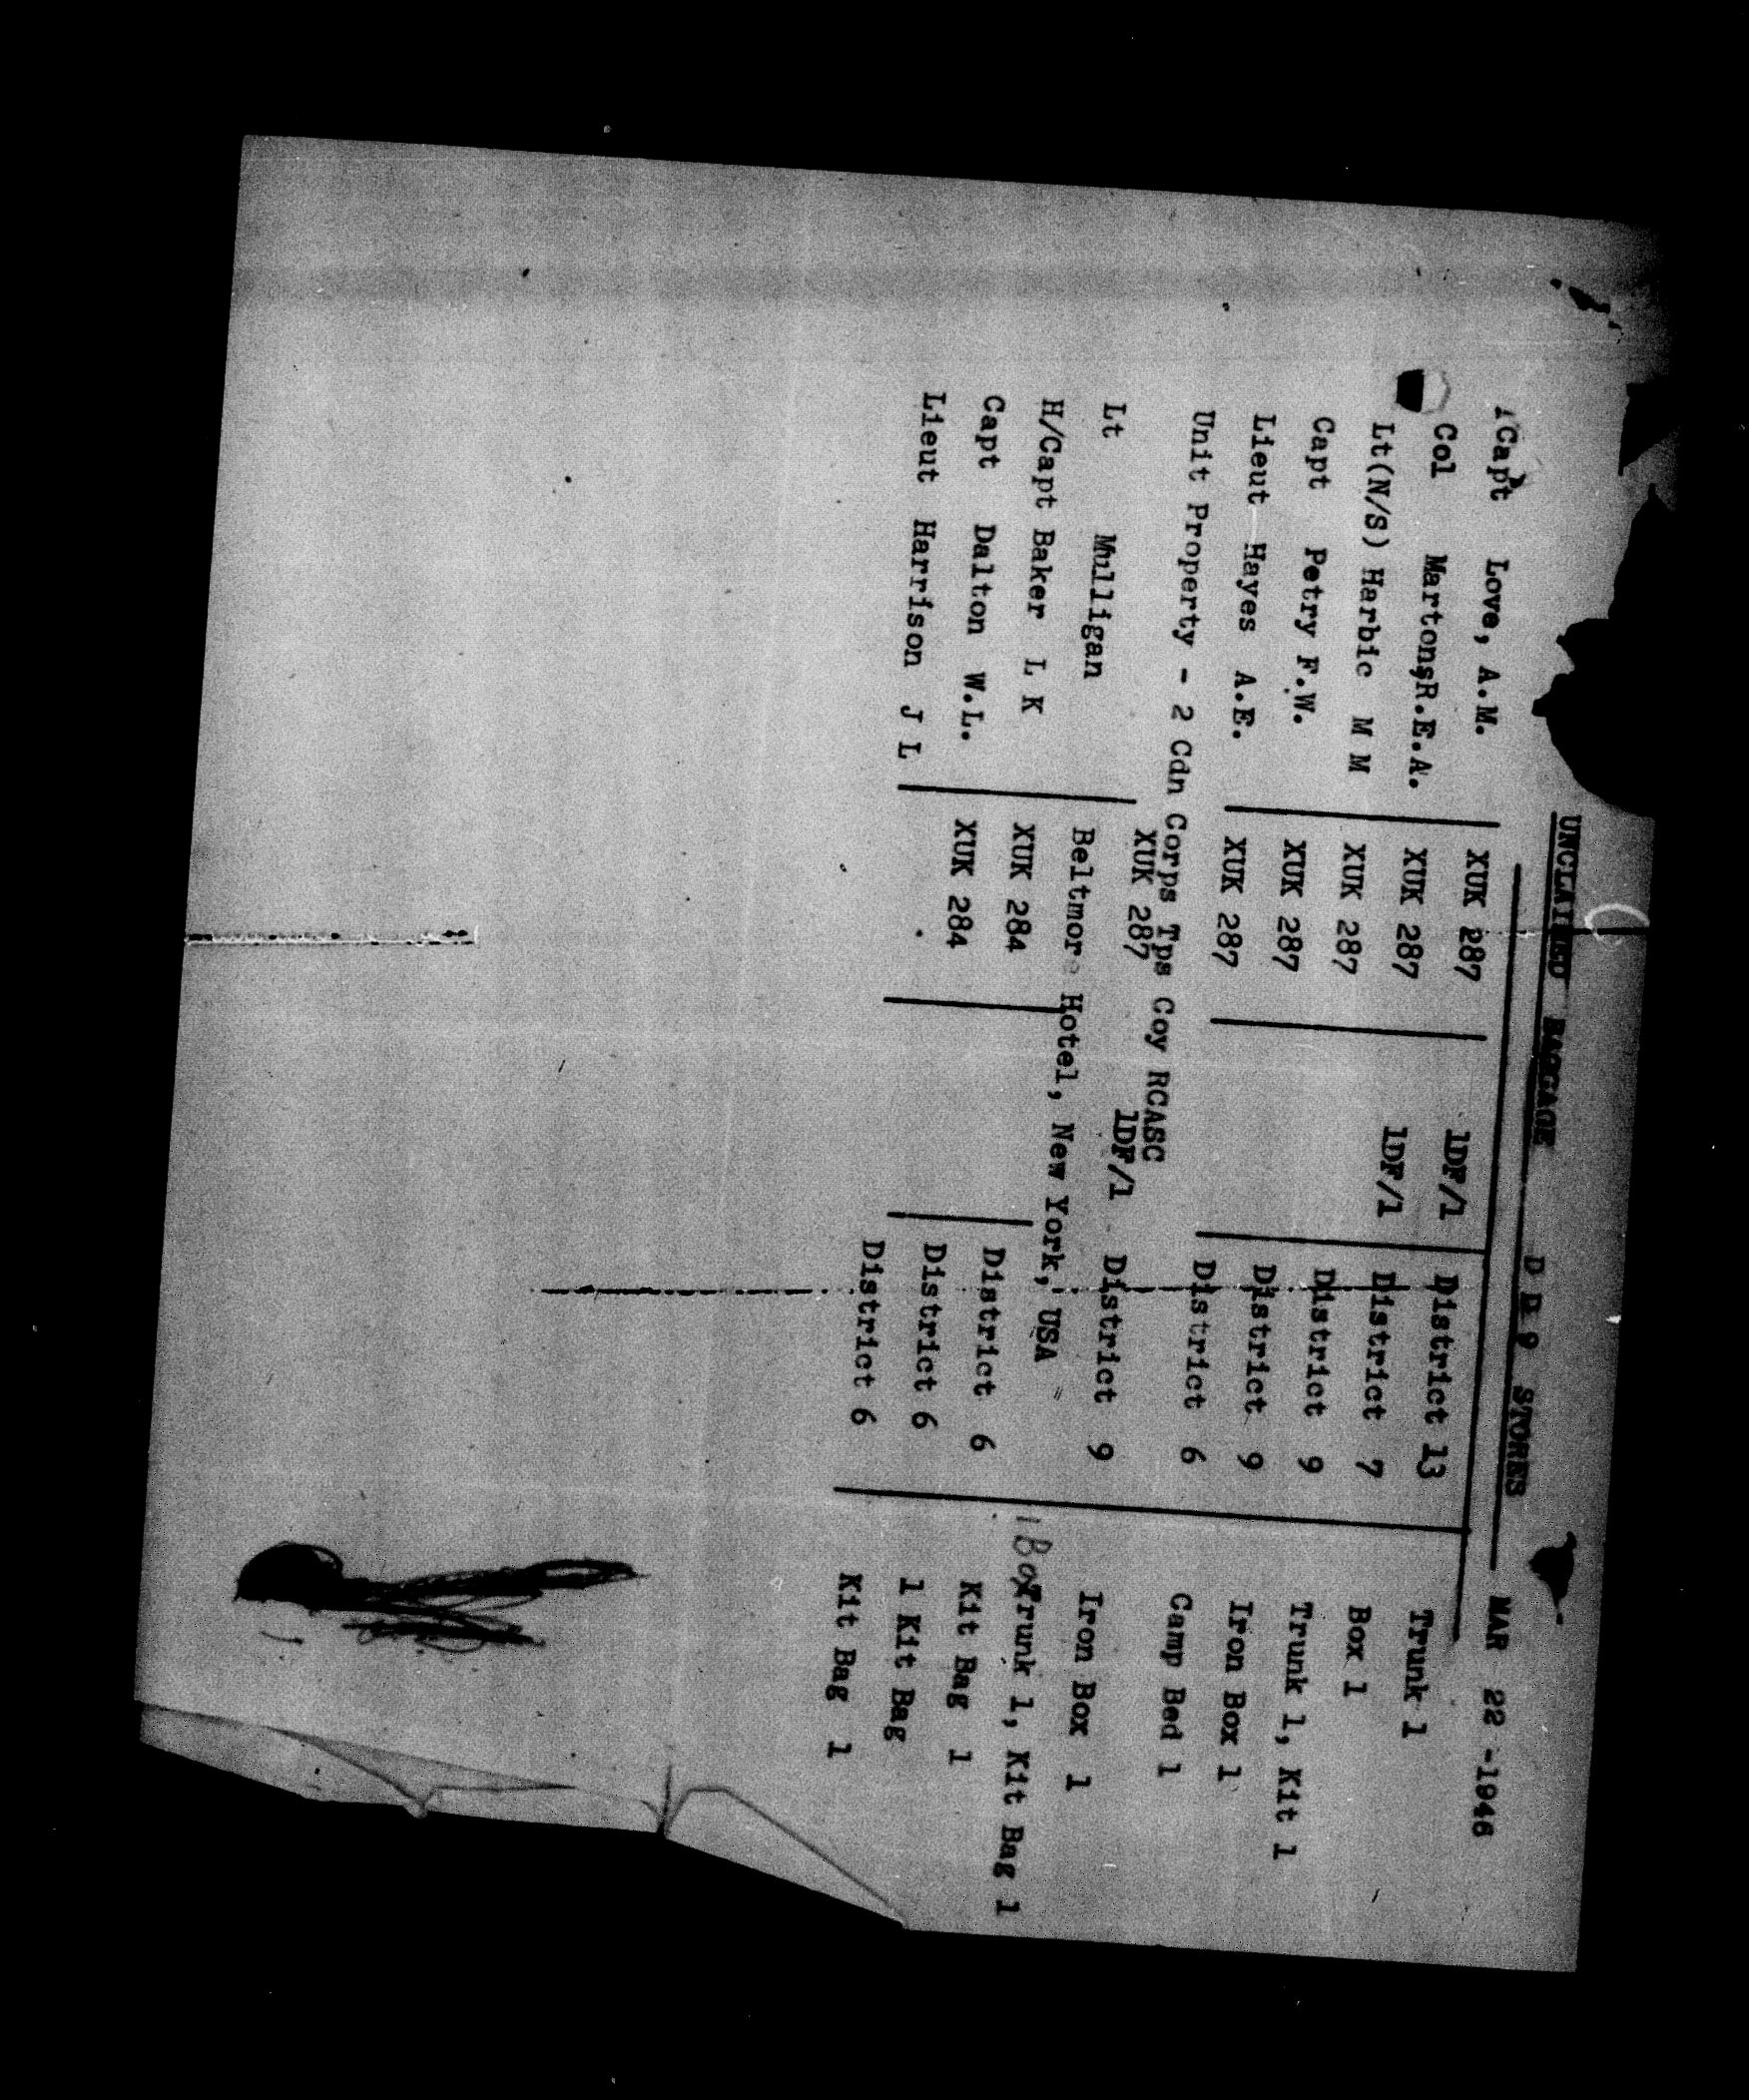 UNCLAIMED BAGGAGE D D 9 STORES MAR 22 -1946
Capt Love, A.M. XUK 287 1DF/1 District 13 Trunk 1
Col Martons,R.E.A. XUK 287 1DF/1 District 7 Box 1
Lt(N/S) Harbic M M XUK 287 District 9 Trunk 1, Kit 1
Capt Petry F.W. XUK 287 District 9 Iron Box 1
Lieut Hayes A.E. XUK 287 District 6 Camp Bed 1
Unit Property - 2 Cdn Corps Tps Coy RCASC
XUK 287 1DF/1 District 9 Iron Box 1
Lt Mulligan Beltmore Hotel, New York, USA 1 Box Trunk 1, Kit Bag 1
H/Capt Baker L K XUK 284 District 6 Kit Bag 1
Capt Dalton W.L. XUK 284 District 6 1 Kit Bag
Lieut Harrison J L District 6 Kit Bag 1